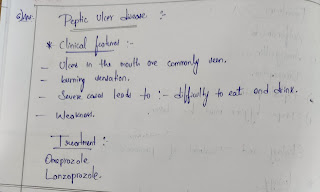 6) Ans
Peptic Ulcer disease :
* Clinical features :-
- Ulcers in the mouth are commonly seen.
- burning sensation.
- Severe cases leads to :- difficulty to eat and drink.
- Weakness.
Treatment :
Omeprozole
Lanzoprozole.